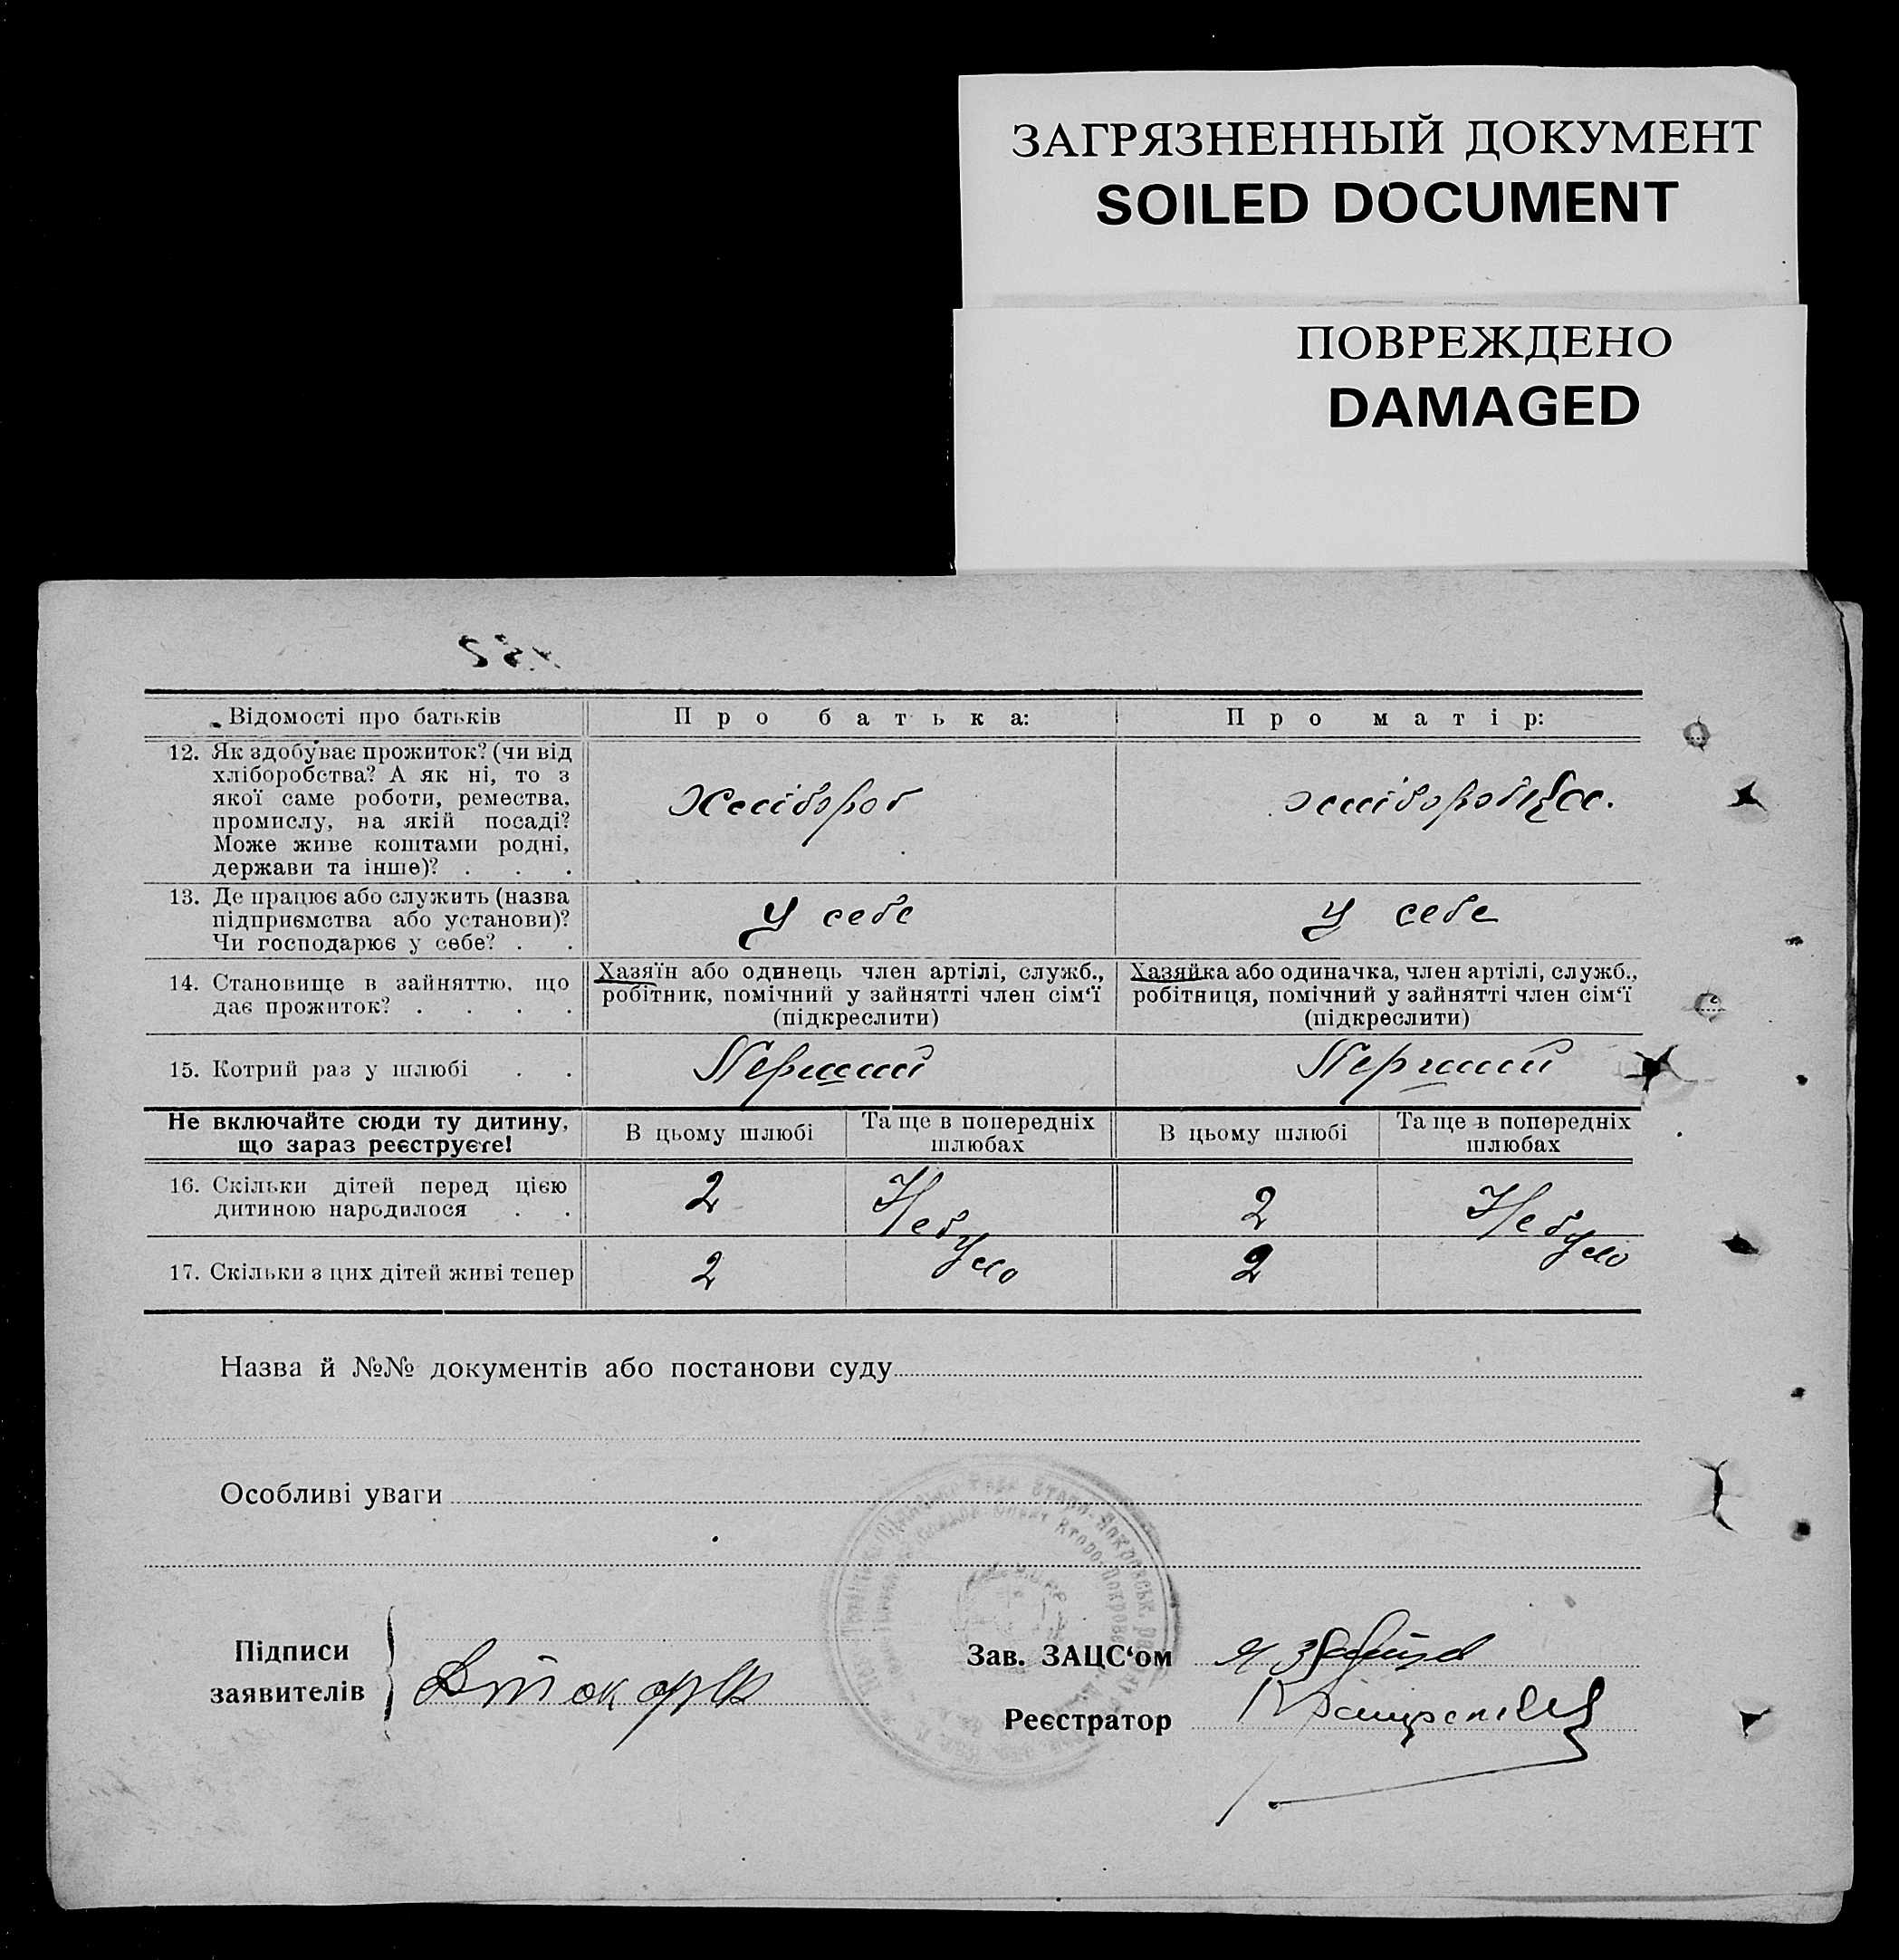 ЗАГРЯЗНЕННЫЙ ДОКУМЕНТ
SOILED DOCUMENT
ПОВРЕЖДЕНО
DAMAGED
Відомості про батьків
Про батька:
Про матір:
12. Як здобуває прожиток? (чи від
хліборобства? А як ні, то з
якої саме роботи, ремества,
промислу, на якій посаді?
Може живе коштами родні,
держави та інше)? . . .
Хлібороб
хліборобка.
13. Де працює або служить (назва
підприємства або установи)?
Чи господарює у себе? . .
У себе
У себе
14. Становище в зайняттю, що
дає прожиток? . . . .
Хазяїн або одинець член артілі, служб.,
робітник, помічний у зайнятті член сім'ї
(підкреслити)
Хазяйка або одиначка, член артілі, служб.,
робітниця, помічний у зайнятті член сім'ї
(підкреслити)
15. Котрий раз у шлюбі . .
Перший
Перший
Не включайте сюди ту дитину,
що зараз реєструєте!
В цьому шлюбі
Та ще в попередніх
шлюбах
В цьому шлюбі
Та ще в попередніх
шлюбах
16. Скільки дітей перед цією
дитиною народилося . .
2
Не було
2
Не було
17. Скільки з цих дітей живі тепер
2
2
Назва й №№ документів або постанови суду
Особливі уваги
Підписи
заявителів
Зав. ЗАЦС'ом
Реєстратор